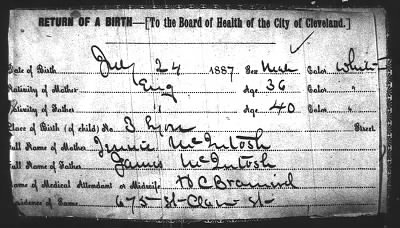 RETURN OF A BIRTH—[To the Board of Health of the City of Cleveland.]
Date of Birth July 24 1887 Sex Male Color White
Nativity of Mother Eng Age 36 Color "
Nativity of Father " Age 40 Color "
Place of Birth (of child) No. 3 Street
Full Name of Mother Jennie McIntosh
Full Name of Father James McIntosh
Name of Medical Attendant or Midwife H C
Residence of Same 675 St-Clair St-